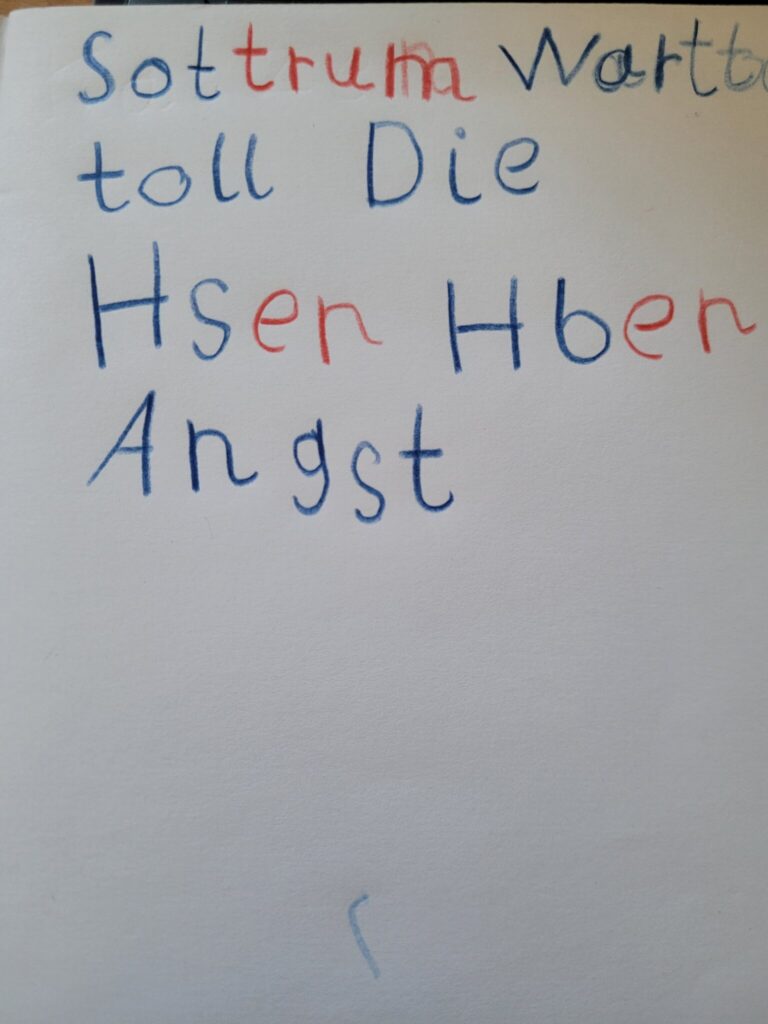 Sottrum Wartt
toll Die
Hsen Hben
Angst